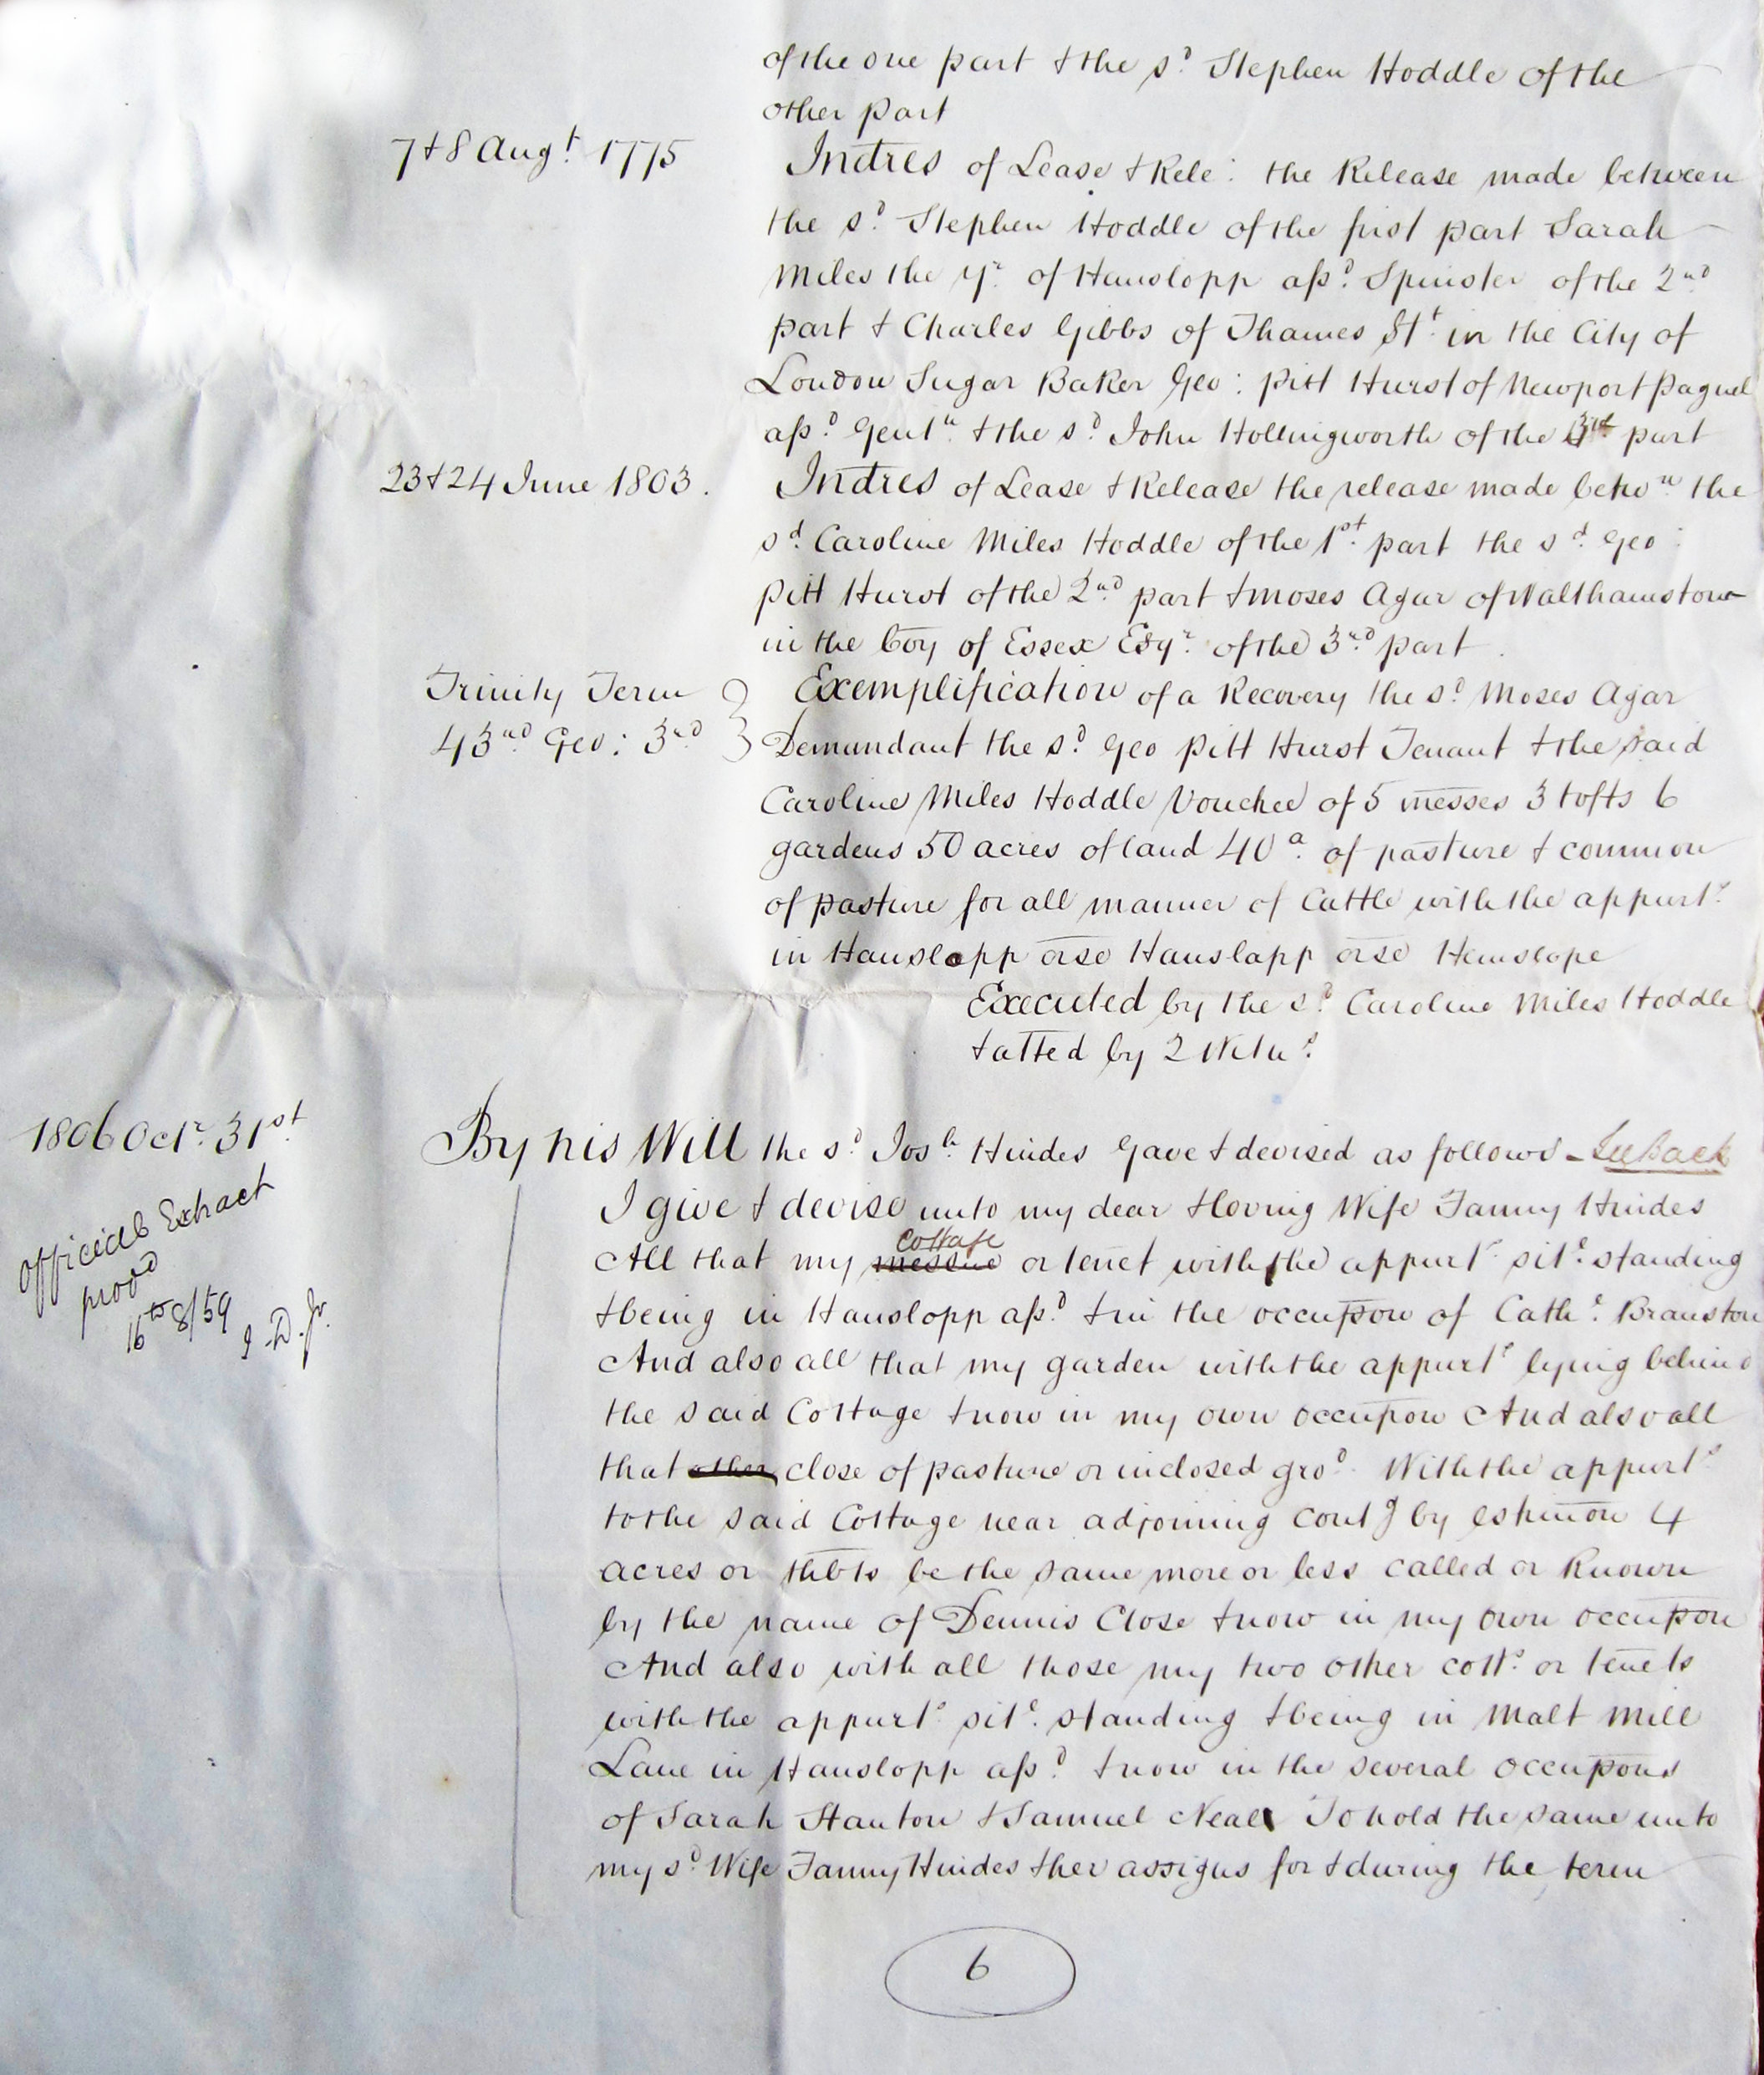 of the one part & the sd. Stephen Hoddle of the
other part
7 & 8 Augt. 1775
Indres of Lease & Rele: the Release made between
the sd. Stephen Hoddle of the first part Sarah
Miles the yr. of Hanslopp afsd. Spinster of the 2nd
part & Charles Gibbs of Thames St. in the City of
London Sugar Baker Geo: Pitt Hurst of Newport Pagnel
afsd. Gentn. & the sd. John Hollingworth of the 3rd part
23 & 24 June 1803.
Indres of Lease & Release the release made betwn the
sd. Caroline Miles Hoddle of the 1st. part the sd. Geo:
Pitt Hurst of the 2nd part & Moses Agar of Walthamstow
in the Coy of Essex Esqr. of the 3rd part.
Trinity Term
43rd Geo: 3rd
Exemplification of a Recovery the sd. Moses Agar
Demandant the sd. Geo Pitt Hurst Tenant & the said
Caroline Miles Hoddle Vouchee of 5 messes 3 tofts 6
gardens 50 acres of land 40 a. of pasture & common
of pasture for all manner of Cattle with the appurts.
in Hanslopp orse Hanslapp orse Hanslope
Executed by the sd. Caroline Miles Hoddle
& atted by 2 Witns.
1806 Octr. 31st.
By his Will the sd. Josh. Hindes Gave & devised as follows - See Back
Official Extract
prood
16th 8/59
J. D. Jr.
I give & devise unto my dear & loving Wife Fanny Hindes
cottage
All that my messue or tenet with the appurts site. standing
& being in Hanslopp afsd. & in the occupon of Cathe. Branston
And also all that my garden with the appurts lying behind
the said Cottage & now in my own occupon And also all
that other close of pasture or inclosed grod. With the appurts
to the said Cottage near adjoining contg by estimon 4
acres or thbts be the same more or less called or known
by the name of Dennis Close & now in my own occupon
And also with all those my two other cotts. or tenets
with the appurts site. standing & being in Malt Mill
Lane in Hanslopp afsd. & now in the several occupons
of Sarah Stanton & Samuel Neal To hold the same unto
my sd. Wife Fanny Hindes & her assigns for & during the term
6